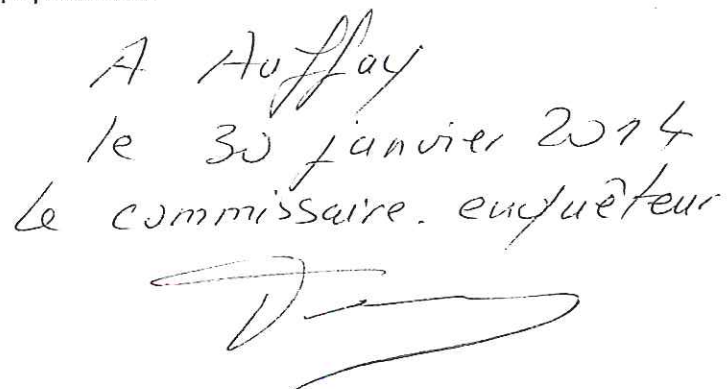 A Auffay
le 30 janvier 2014
Le commissaire. enquêteur